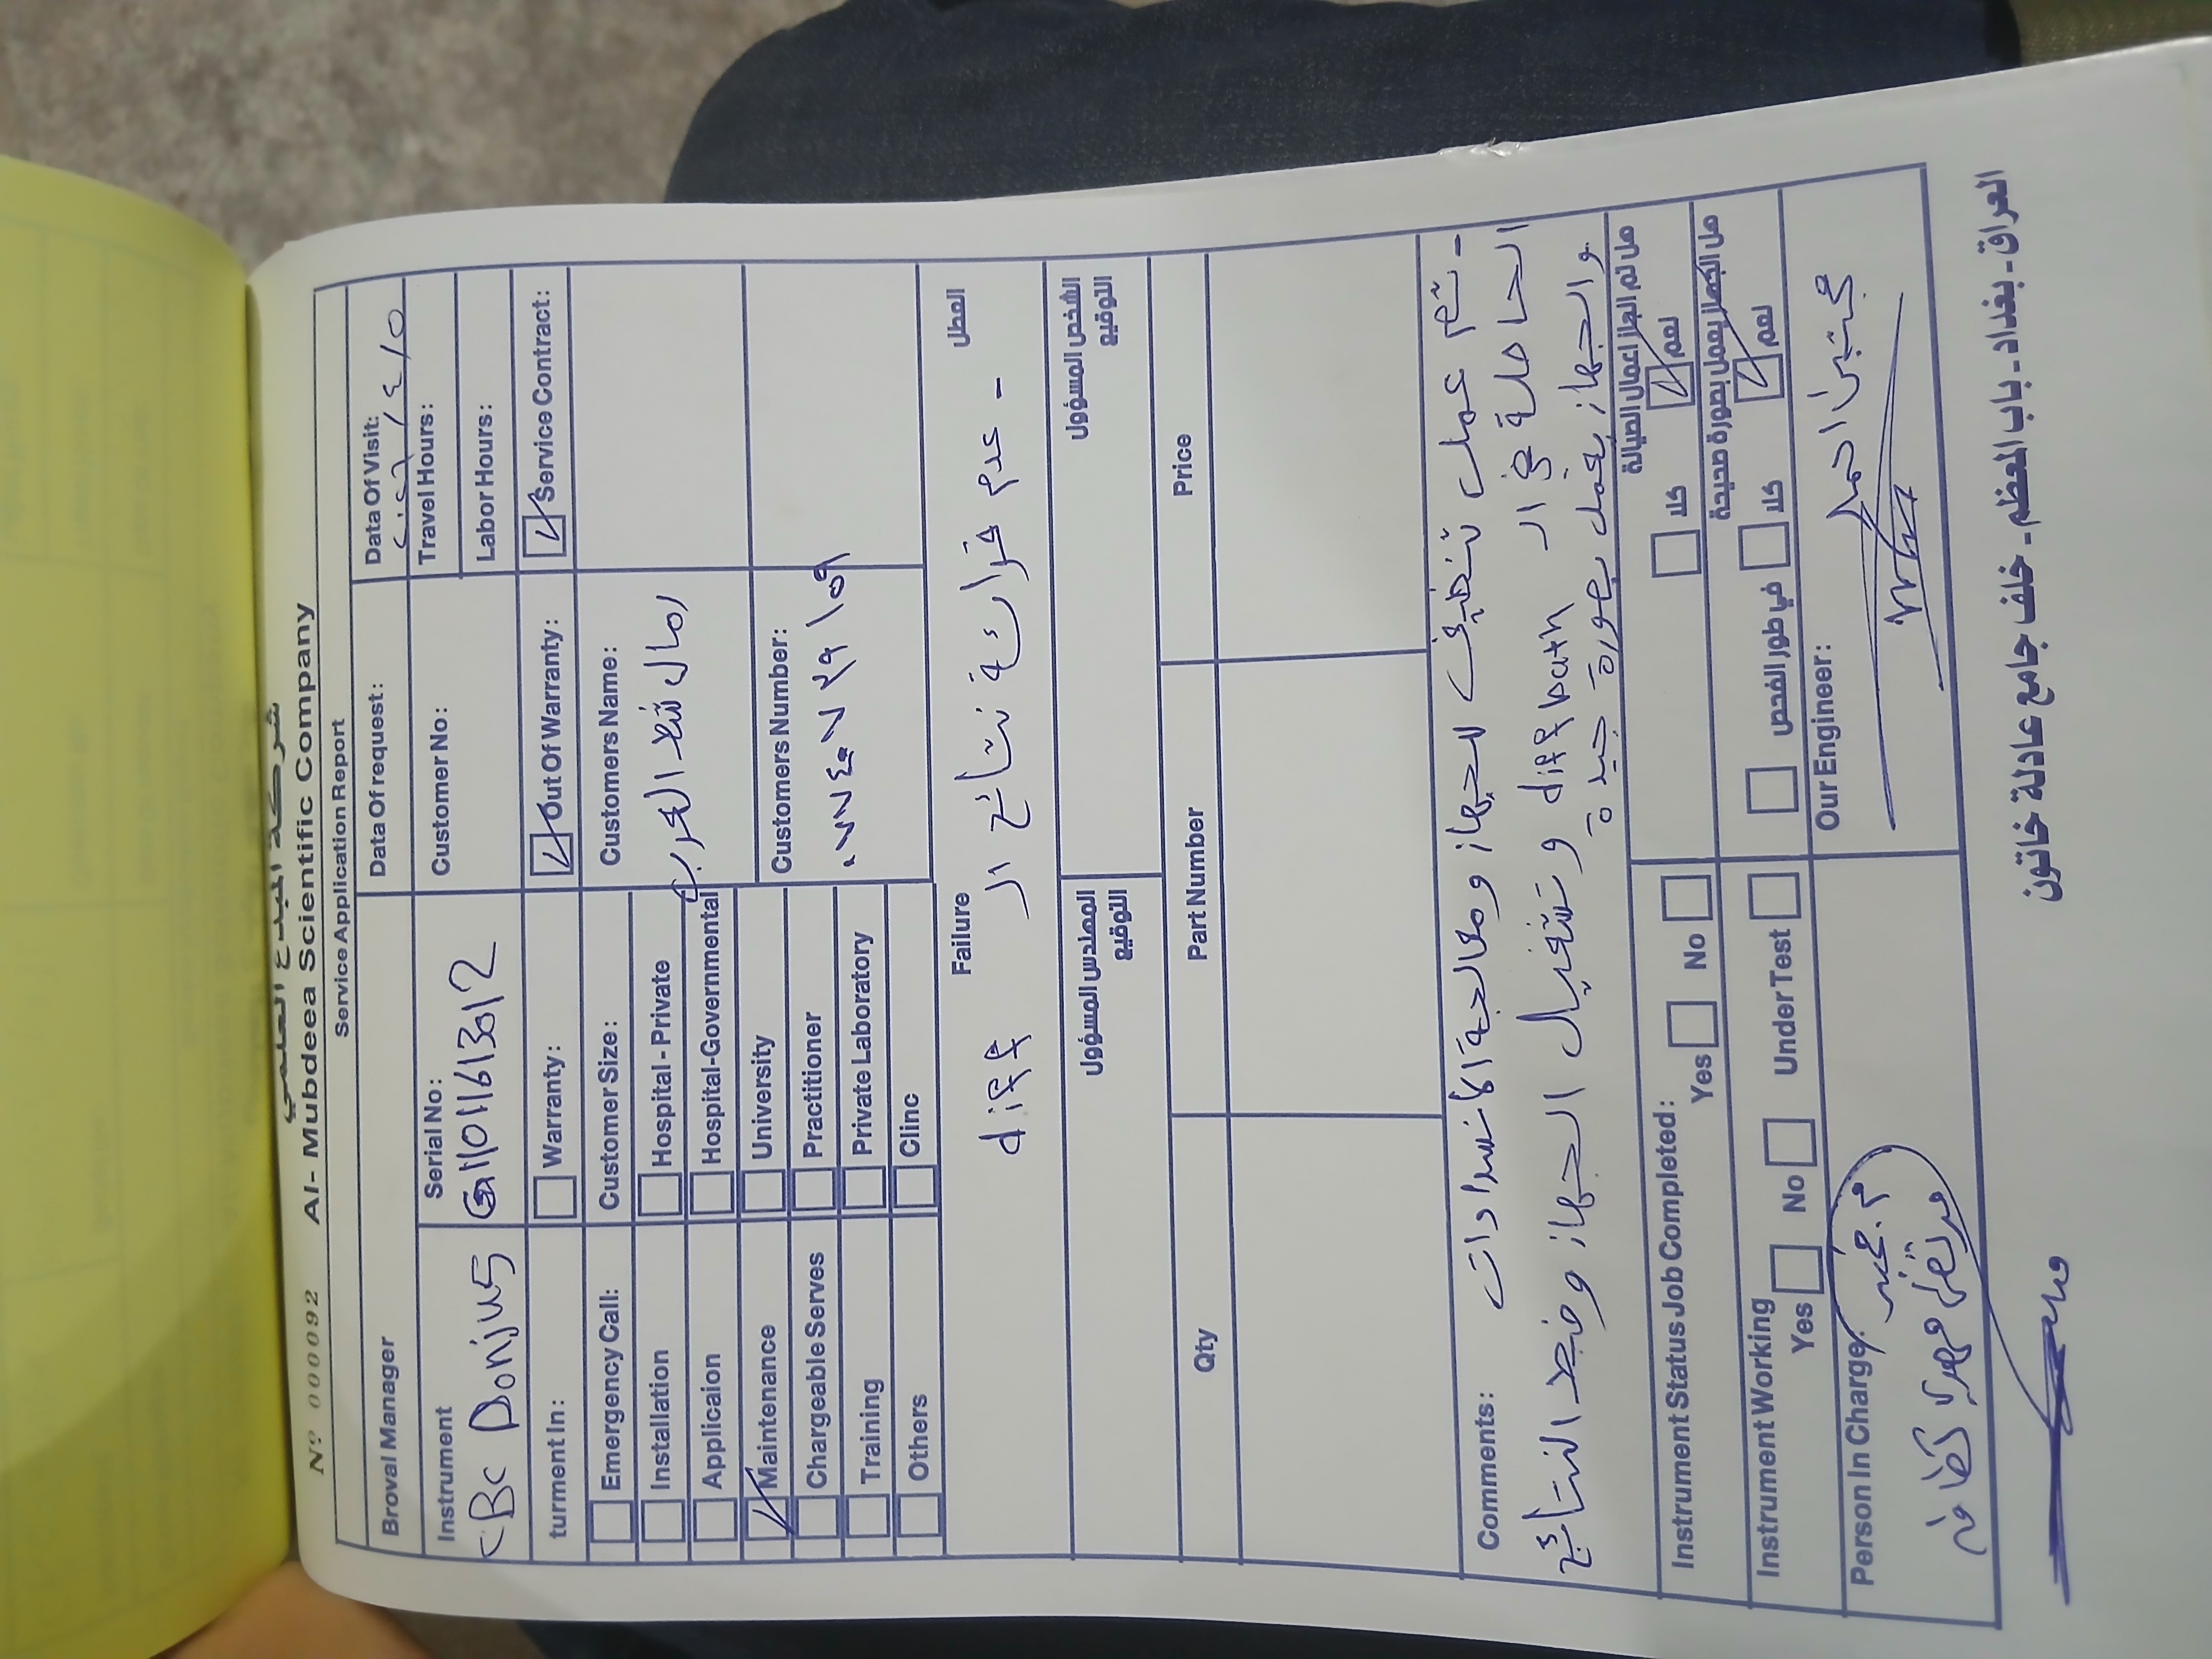 شركة المبدع العلمي
Nº 000092 Al- Mubdeea Scientific Company
Service Application Report
Broval Manager
Data Of request:
Data Of Visit:
٢٠٢٦/٤/٥
Instrument
CBC Donjius
Serial No:
Customer No:
Travel Hours:
Labor Hours:
turment In:
Warranty:
Out Of Warranty:
Service Contract:
Emergency Call:
Installation
Applicaion
Maintenance
Chargeable Serves
Training
Others
Customer Size:
Hospital - Private
Hospital-Governmental
University
Practitioner
Private Laboratory
Clinc
Customers Name:
Customers Number:
Failure
العطل
- عدم قرائة نتائج ال diff
المهندس المسؤول
التوقيع
الشخص المسؤول
التوقيع
Qty
Part Number
Price
Comments:
- تم عمل تنظيف للجهاز ومعالجة الأنسدادات
الحاصلة في ال diff bath و تشغيال الجهاز وضبط النتائج
والجهاز يعمل بصورة جيدة
Instrument Status Job Completed:
Yes
No
هل تم انجاز اعمال الصيانة
كلا
نعم
Instrument Working
Yes
No
Under Test
هل الجهاز يعمل بصورة صحيحة
في طور الفحص
كلا
نعم
Person In Charge:
Our Engineer:
العراق - بغداد - باب المعظم - خلف مرآب خاتون